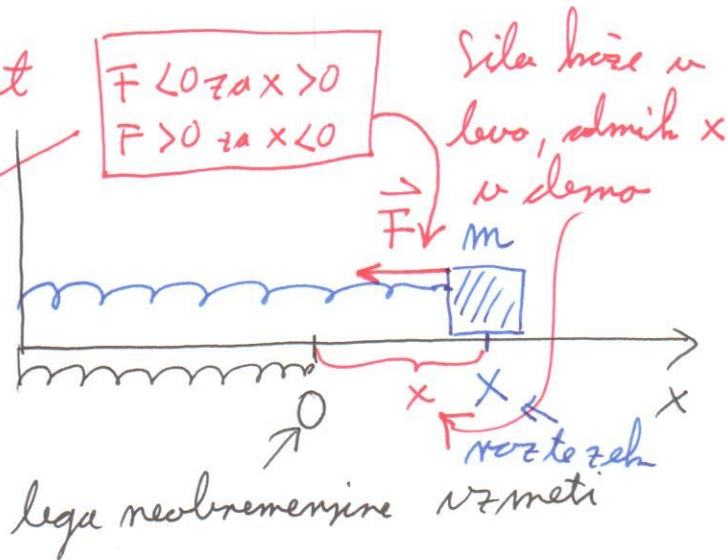 t
F < 0 za x > 0
F > 0 za x < 0
Sila kaže v
levo, odmik x
v desno
F
m
x
X
x
0
raztezek
lega neobremenjene vzmeti